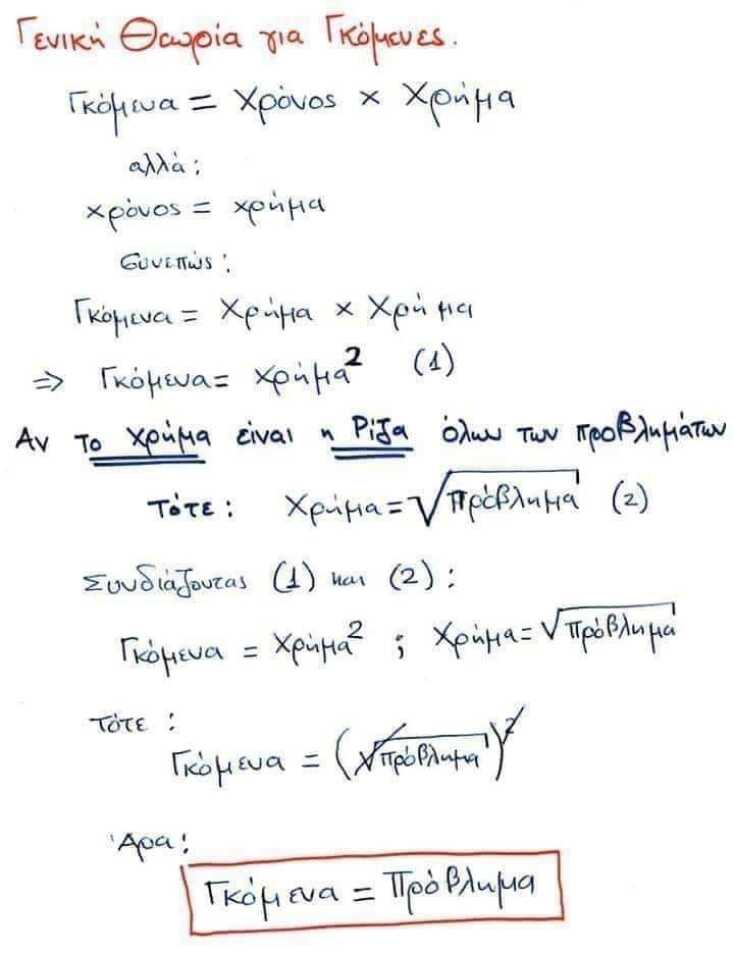 Γενική Θεωρία για Γκόμενες.
Γκόμενα = Χρόνος × Χρήμα
αλλά:
χρόνος = χρήμα
συνεπώς:
Γκόμενα = Χρήμα × Χρήμα
⇒ Γκόμενα = χρήμα² (1)
Αν το χρήμα είναι η Ρίζα όλων των προβλημάτων
τότε: Χρήμα = √πρόβλημα (2)
Συνδιάζοντας (1) και (2):
Γκόμενα = Χρήμα² ; Χρήμα = √πρόβλημα
τότε:
Γκόμενα = (√πρόβλημα)²
Άρα:
Γκόμενα = Πρόβλημα